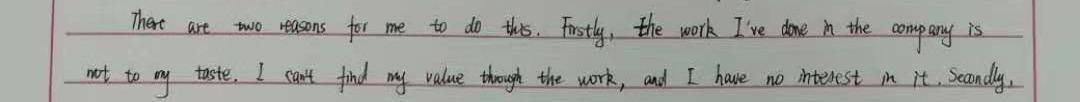 There are two reasons for me to do this. Firstly, the work I've done in the company is
not to my taste. I can't find my value through the work, and I have no interest in it. Secondly,